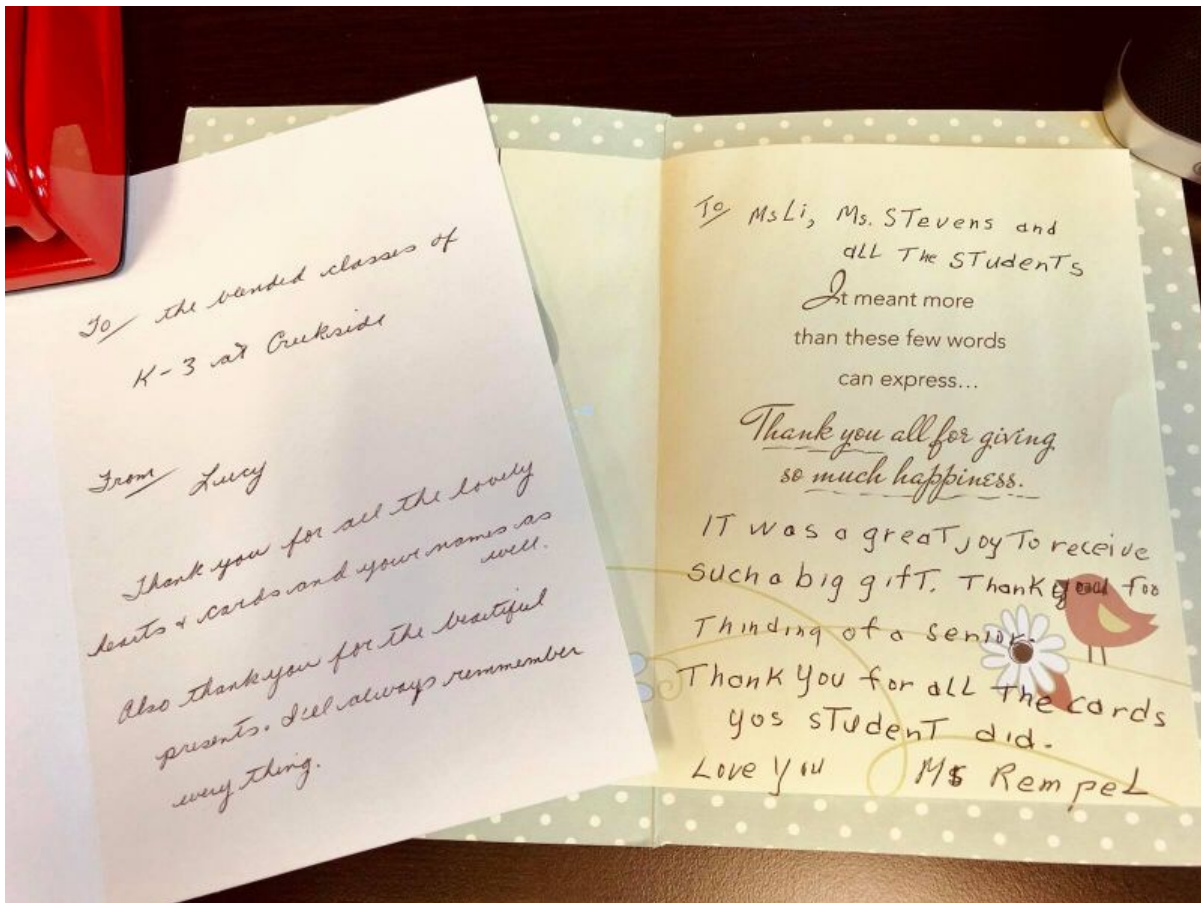 To the blended classes of
K-3 at Creekside
From Lucy
Thank you for all the lovely
hearts & cards and your names as
well.
Also thank you for the beautiful
presents. I'll always remmember
every thing.
To Ms Li, Ms. Stevens and
all The Students
It meant more
than these few words
can express...
Thank you all for giving
so much happiness.
It was a great joy To receive
such a big gift. Thank you for
Thinding of a senior.
Thank You for all The cards
yos student did.
Love You Ms Rempel